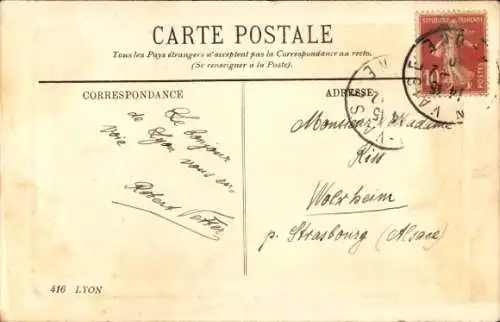 CARTE POSTALE
Tous les Pays étrangers n'acceptent pas la Correspondance au recto.
(Se renseigner à la Poste).
CORRESPONDANCE
Le bonjour
de Lyon vous en
voie
Robert Vetter
ADRESSE
Monsieur & Madame
Kiss
Wolxheim
p. Strasbourg (Alsace)
REPUBLIQUE FRANÇAISE
10
POSTES
416 LYON